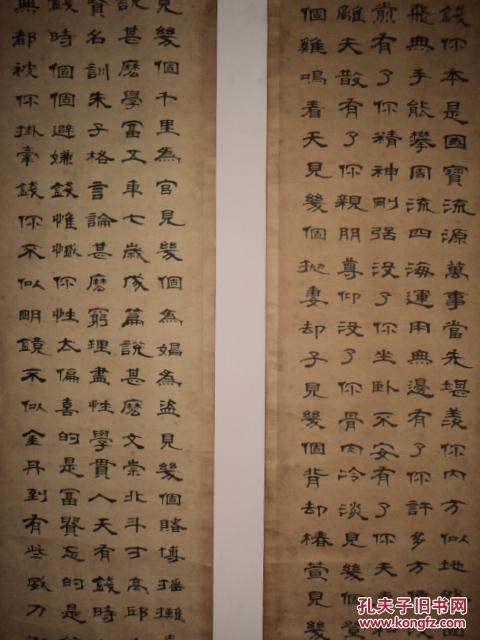 錢你本是國寶流源萬事當先堪羨你內方似地外圓
飛無手能攀周流四海運用無邊有了你許多方便
煎有了你精神剛强沒了你坐卧不安有了你夫
離夫散有了你親朋尊仰沒了你骨肉冷淡見幾個登
個雞鳴看天見幾個抛妻却子見幾個背却椿萱見幾
見幾個千里為官見幾個為娼為盜見幾個賭博播攤
說甚麽學冨五車七歲成篇說甚麽文崇北斗才高邱
賢名訓朱子格言論甚麽窮理盡性學貫人天有錢時
錢時個個避嫌錢惟憾你性太偏喜的是冨賢忘的是
無都被你掛牽錢你不似明鏡不似金丹到有些威力
孔夫子旧书网